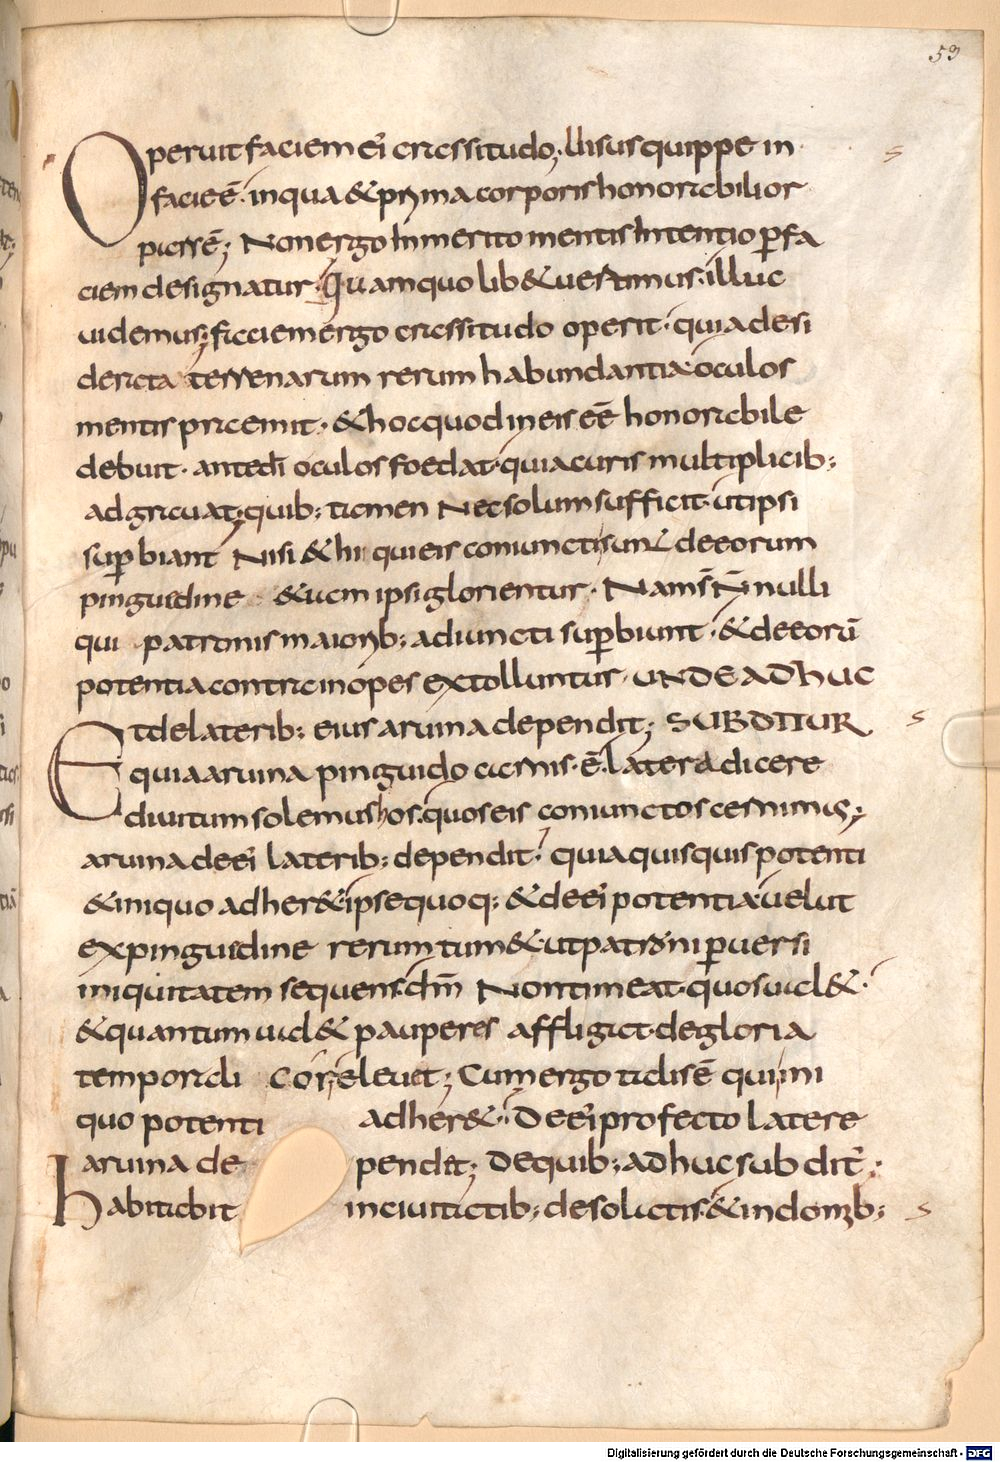 53
Operuit faciem ei' crassitudo; Uisus quippe in
facie ē· in qua & prima corporis honorabilior
pars ē; Non ergo inmerito mentis intentio ꝑ fa
ciem designatur· Quam quo lib& uertimus· illuc
uidemus; faciem ergo crassitudo operit· quia desi
derata terrenarum rerum habundantia· oculos
mentis praemit· & hoc quod in eis eē honorabile
debuit· ante dī oculos foedat· quia curis multiplicib;
adgrauat; quib; tamen Nec solum sufficit· ut ipsi
suꝑbiant Nisi & hi qui eis coniuncti sunt de eorum
pinguedine & uam ipsi glorientur· Nam s̄ Nōnulli
qui patronis maiorib; adiuncti suꝑbiunt· & de eorū
potentia contra inopes extolluntur· UNDE ADHUC
Et de laterib; eius aruina dependit; SUBDITUR
quia aruina pinguido carnis· ē· latera dicere
diuitum solemus hos· quos eis coniunctos cernimus;
aruina de ei' laterib; dependit· quia quisquis potenti
& iniquo adher& ipse quoq; & de ei' potentia· uelut
ex pinguedine rerum tum& ut patroni ꝑuersi
iniquitatem sequens· dm̄ Non timeat· quos ual&·
& quantum ual& pauperes affligat· de gloria
temporali cor eleuat; Cum ergo talis ē qui ini
quo potenti adher&· De ei' profecto latere
aruina de pendet; De quib; adhuc subdit';
habitabit in ciuitatib; desolatis· & in domib;
Digitalisierung gefördert durch die Deutsche Forschungsgemeinschaft - DFG